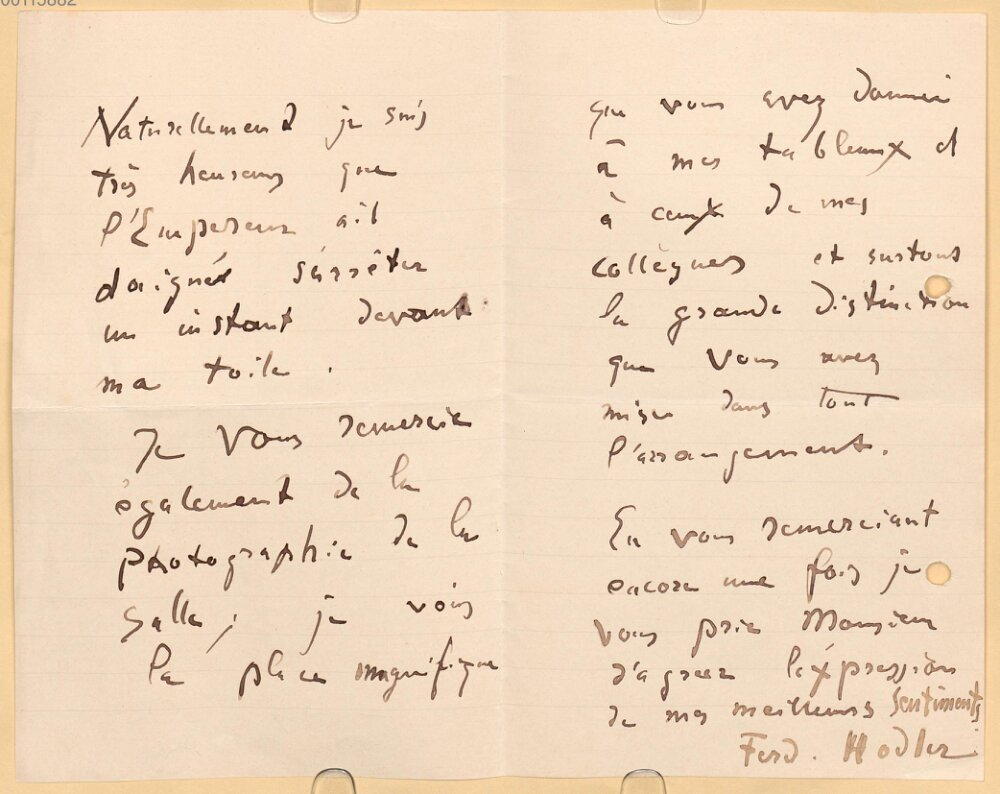 00115882
Naturellement je suis
très heureux que
l'Empereur ait
daigné s'arrêter
un instant devant
ma toile.
Je vous remercie
également de la
photographie de la
Salle; je vois
la place magnifique
que vous avez donnée
à mes tableaux et
à ceux de mes
collègues et surtout
la grande distinction
que vous avez
mise dans tout
l'arrangement.
En vous remerciant
encore une fois je
vous prie Monsieur
d'agréer l'éxpression
de mes meilleurs sentiments
Ferd. Hodler